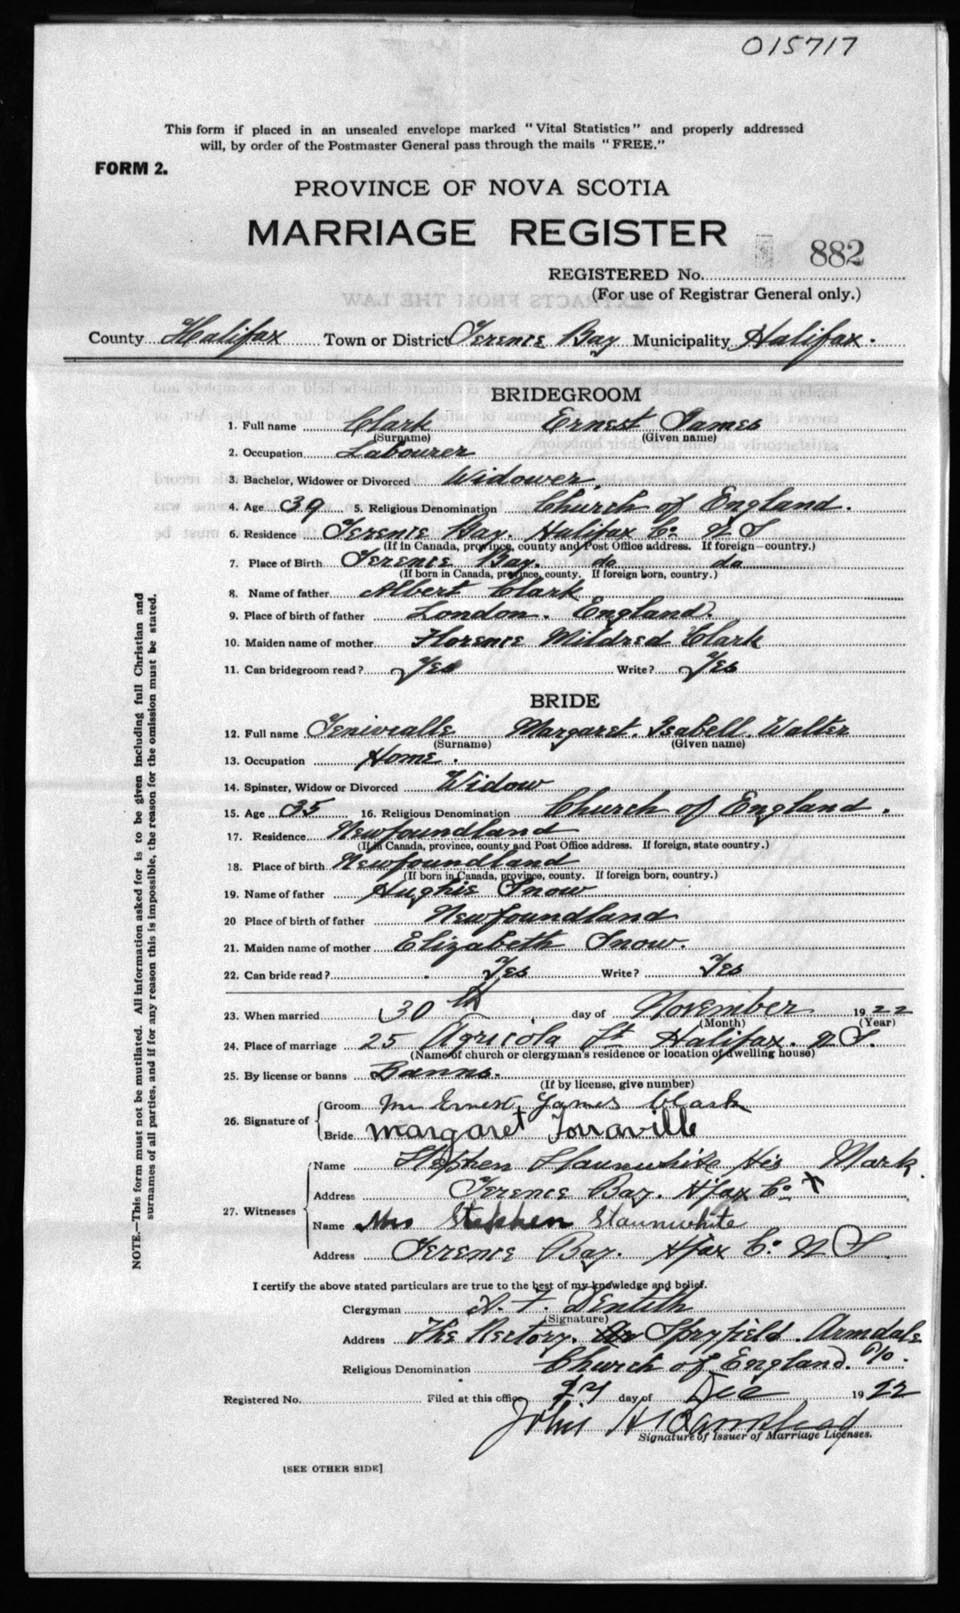 015717
This form if placed in an unsealed envelope marked "Vital Statistics" and properly addressed
will, by order of the Postmaster General pass through the mails "FREE."
FORM 2.
PROVINCE OF NOVA SCOTIA
MARRIAGE REGISTER
882
REGISTERED No.
(For use of Registrar General only.)
County Halifax Town or District Terence Bay Municipality Halifax.
BRIDEGROOM
1. Full name Clark Ernest James
(Surname) (Given name)
2. Occupation Labourer
3. Bachelor, Widower or Divorced Widower.
4. Age 39 5. Religious Denomination Church of England.
6. Residence Terence Bay. Halifax Co. N S
(If in Canada, province, county and Post Office address. If foreign—country.)
7. Place of Birth Terence Bay. do do
(If born in Canada, province, county. If foreign born, country.)
8. Name of father Albert Clark
9. Place of birth of father London. England.
10. Maiden name of mother Florence Mildred Clark
11. Can bridegroom read? Yes Write? Yes
BRIDE
12. Full name Margaret. Isabell. Walter
(Surname) (Given name)
13. Occupation Home.
14. Spinster, Widow or Divorced Widow
15. Age 35 16. Religious Denomination Church of England.
17. Residence Newfoundland
(If in Canada, province, county and Post Office address. If foreign, state country.)
18. Place of birth Newfoundland
(If born in Canada, province, county. If foreign born, country.)
19. Name of father Hughie Snow
20 Place of birth of father Newfoundland
21. Maiden name of mother Elizabeth Snow.
22. Can bride read? Yes Write? Yes
23. When married 30th day of November 1922
(Month) (Year)
24. Place of marriage 25 Agricola St Halifax. N S.
(Name of church or clergyman's residence or location of dwelling house)
25. By license or banns Banns.
(If by license, give number)
26. Signature of
Groom Mr Ernest James Clark
Bride Margaret Forraville
27. Witnesses
Name Stephen Slaunwhite His Mark
Address Terence Bay. Hfax Co. X
Name Mrs Stephen Slaunwhite
Address Terence Bay. Hfax Co. N S.
I certify the above stated particulars are true to the best of my knowledge and belief.
Clergyman Dentith
(Signature)
Address The Rectory. Spryfield. Armdale P/O.
Religious Denomination Church of England.
Registered No. Filed at this office 27 day of Dec 1922
John H
Signature of Issuer of Marriage Licenses.
[SEE OTHER SIDE]
NOTE.—This form must not be mutilated. All information asked for is to be given including full Christian and
surnames of all parties, and if for any reason this is impossible, the reason for the omission must be stated.